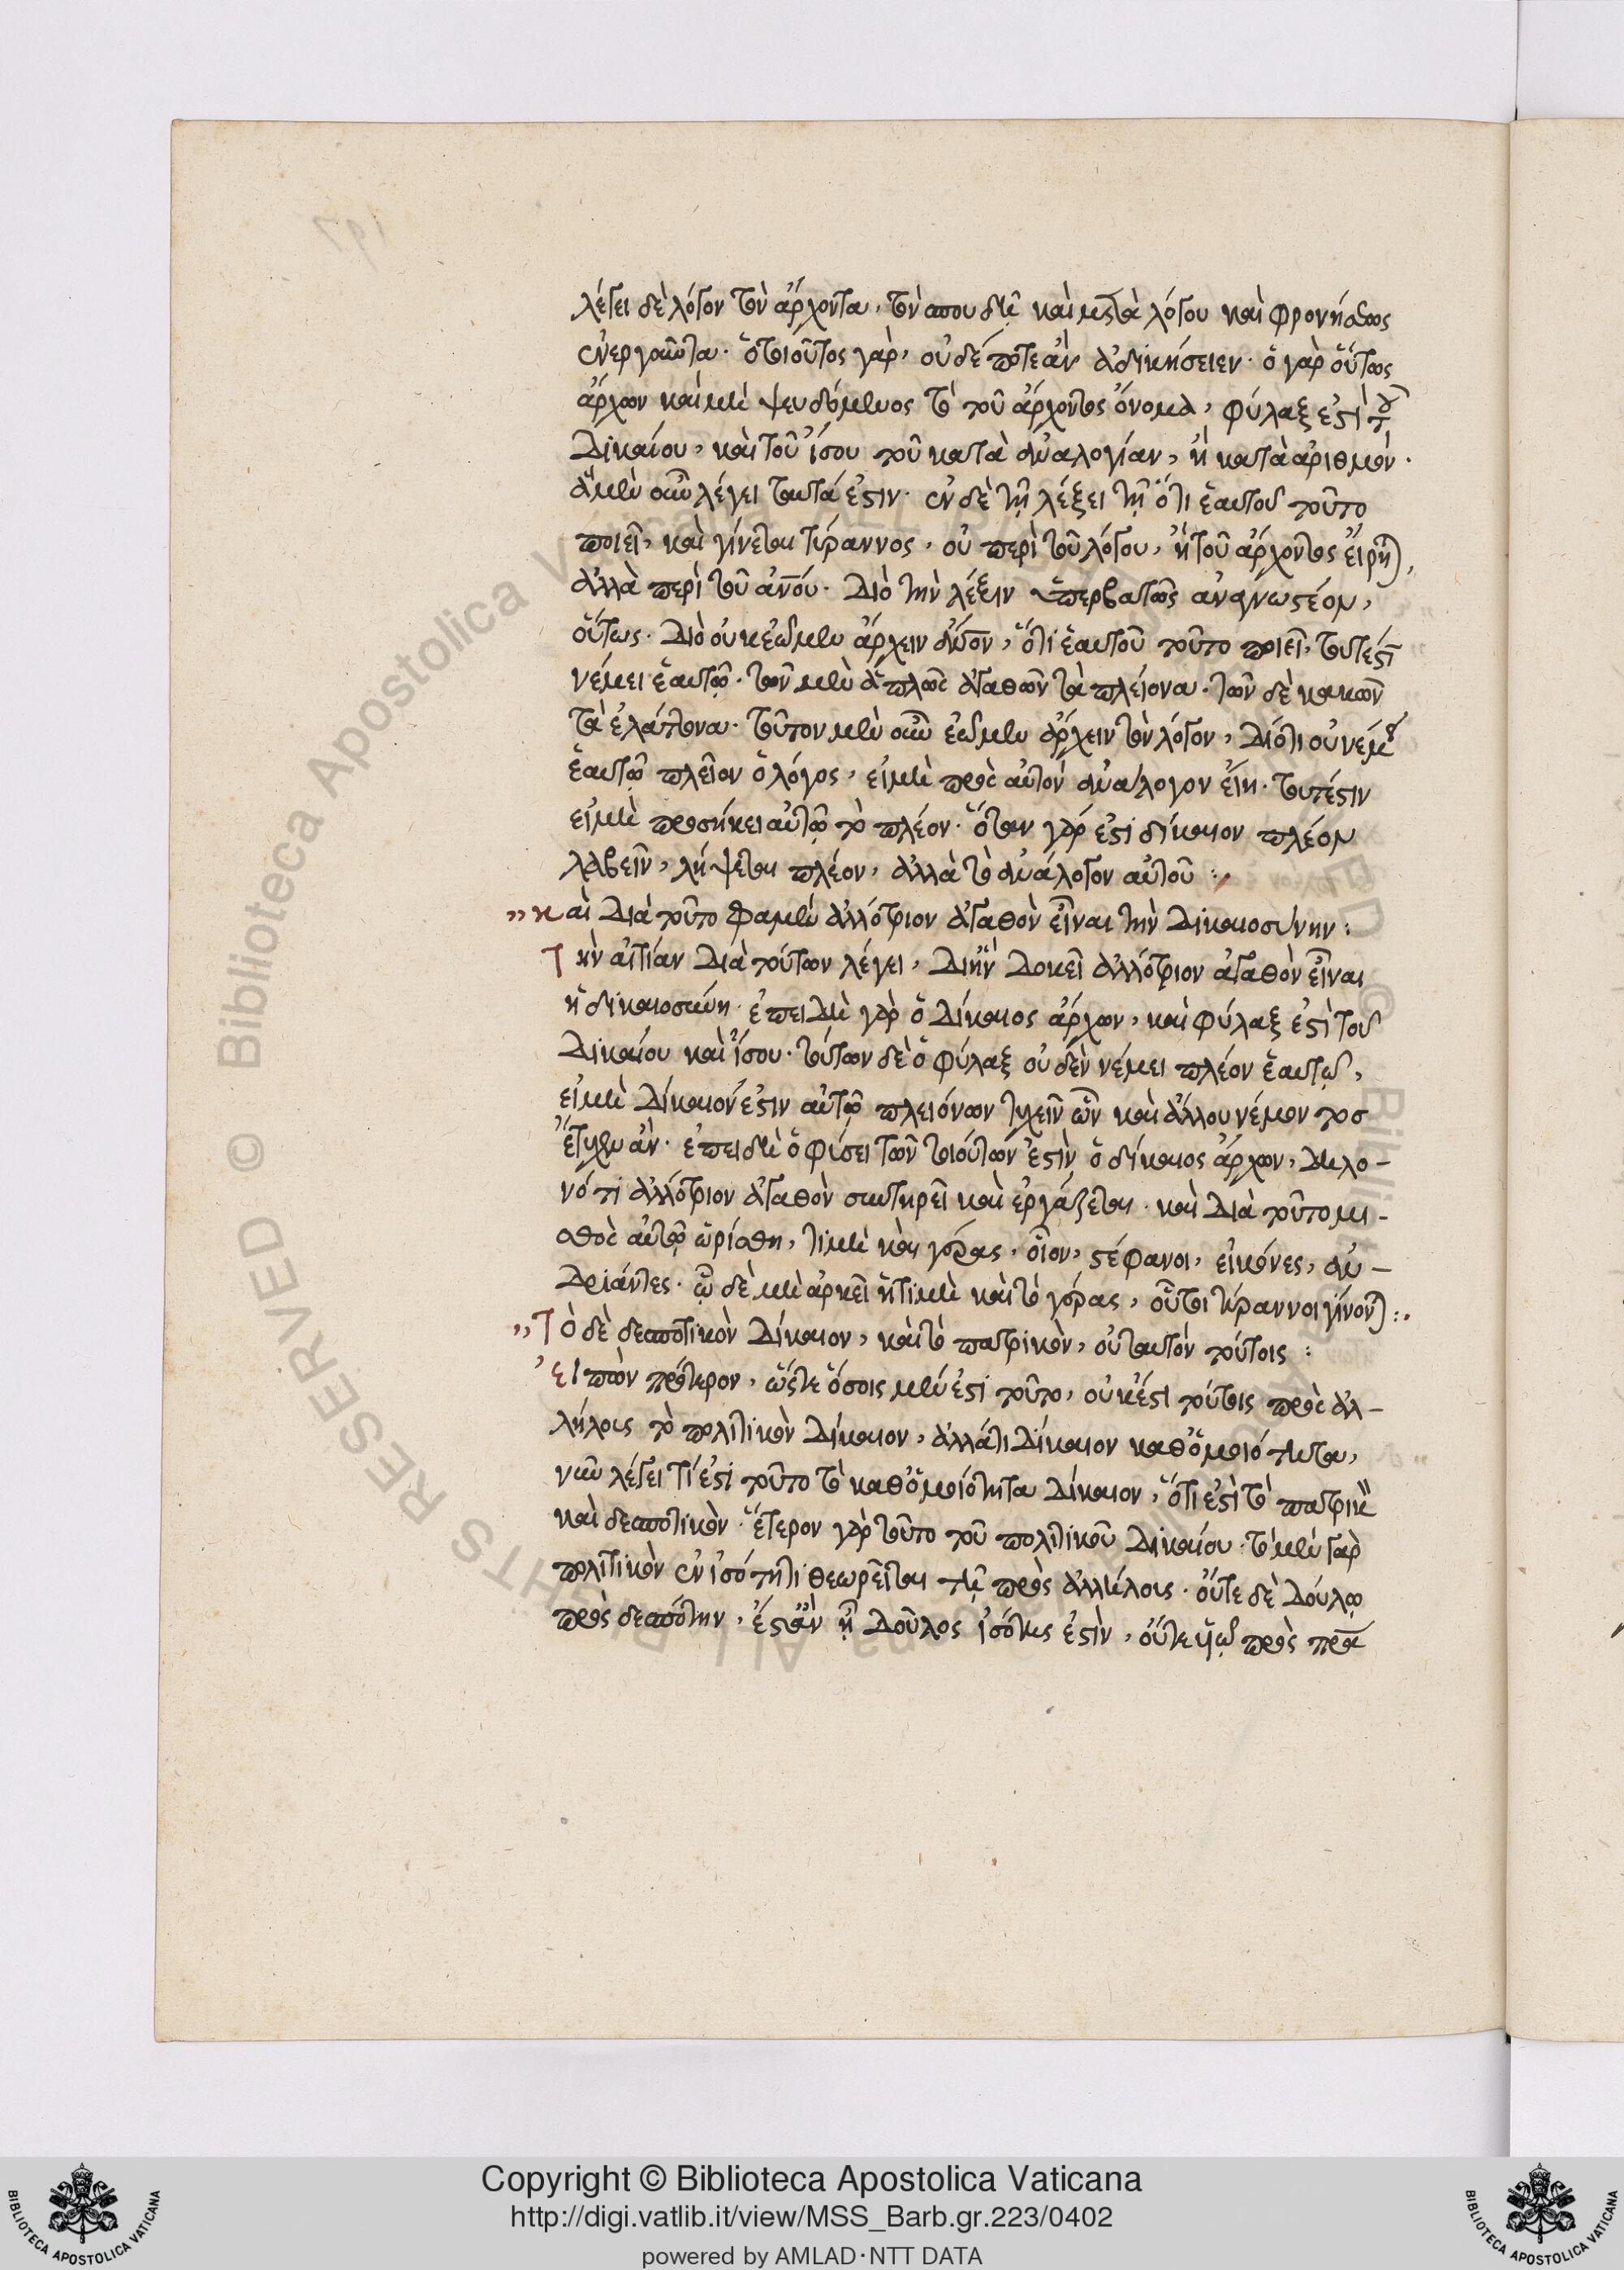 λέγει δὲ λόγον τὸν ἄρχοντα, τὸν σπουδῇ καὶ μετὰ λόγου καὶ φρονήσεως
ἐνεργοῦντα. ὁ τοιοῦτος γὰρ, οὐδέποτε ἂν ἀδικήσειεν. ὁ γὰρ οὕτως
ἄρχων καὶ μὴ ψευδόμενος τὸ τοῦ ἄρχοντος ὄνομα, φύλαξ ἐστὶ τοῦ
δικαίου, καὶ τοῦ ἴσου τοῦ κατὰ ἀναλογίαν, ἢ κατὰ ἀριθμόν.
ἃ μὲν οὖν λέγει ταῦτά ἐστιν. ἐν δὲ τῇ λέξει τῇ ὅτι ἑαυτοῦ τοῦτο
ποιεῖ, καὶ γίνεται τύραννος, οὐ περὶ τοῦ λόγου, ἢ τοῦ ἄρχοντος εἴρηται,
ἀλλὰ περὶ τοῦ ἀνου. διὸ τὴν λέξιν ὑπερβατῶς ἀναγνωστέον,
οὕτως. διὸ οὐκ ἐῶμεν ἄρχειν ἀνον, ὅτι ἑαυτοῦ τοῦτο ποιεῖ, τουτέστι
νέμει ἑαυτῷ. τῶν μὲν ἁπλῶς ἀγαθῶν τὰ πλείονα. τῶν δὲ κακῶν
τὰ ἐλάττονα. τοῦτον μὲν οὖν ἐῶμεν ἄρχειν τὸν λόγον, διότι οὐ νέμει
ἑαυτῷ πλεῖον ὁ λόγος, εἰ μὴ πρὸς αὐτὸν ἀνάλογον εἴη. τουτέστιν
εἰ μὴ προσήκει αὐτῷ τὸ πλέον. ὅταν γάρ ἐστι δίκαιον πλέον
λαβεῖν, λήψεται πλέον, ἀλλὰ τὸ ἀνάλογον αὐτοῦ :
" καὶ διὰ τοῦτο φαμὲν ἀλλότριον ἀγαθὸν εἶναι τὴν δικαιοσύνην :
Τὴν αἰτίαν διὰ τούτων λέγει, δι' ἣν δοκεῖ ἀλλότριον ἀγαθὸν εἶναι
ἡ δικαιοσύνη. ἐπειδὴ γὰρ ὁ δίκαιος ἄρχων, καὶ φύλαξ ἐστὶ τοῦ
δικαίου καὶ ἴσου. τούτων δὲ ὁ φύλαξ οὐδὲν νέμει πλέον ἑαυτῷ,
εἰ μὴ δίκαιόν ἐστιν αὐτῷ πλειόνων τυχεῖν ὧν καὶ ἄλλου νέμοντος
ἔτυχεν ἄν. ἐπειδὴ ὁ φύσει τῶν τοιούτων ἐστὶν ὁ δίκαιος ἄρχων, δηλο-
νότι ἀλλότριον ἀγαθὸν συντηρεῖ καὶ ἐργάζεται. καὶ διὰ τοῦτο μι-
σθὸς αὐτῷ ὡρίσθη, τιμὴ καὶ γέρας. οἷον, στέφανοι, εἰκόνες, ἀν-
δριάντες. ᾧ δὲ μὴ ἀρκεῖ ἡ τιμὴ καὶ τὸ γέρας, οὗτοι τύραννοι γίνονται :.
" Τὸ δὲ δεσποτικὸν δίκαιον, καὶ τὸ πατρικὸν, οὐ ταυτὸν τούτοις :
Εἰπὼν πρότερον, ὥστε ὅσοις μὲν ἐστὶ τοῦτο, οὐκ ἔστι τούτοις πρὸς ἀλ-
λήλους τὸ πολιτικὸν δίκαιον, ἀλλά τι δίκαιον καθ' ὁμοιότητα,
νῦν λέγει τί ἐστι τοῦτο τὸ καθ' ὁμοιότητα δίκαιον, ὅτι ἐστὶ τὸ πατρικὸν
καὶ δεσποτικὸν. ἕτερον γὰρ τοῦτο τοῦ πολιτικοῦ δικαίου. τὸ μὲν γὰρ
πολιτικὸν ἐν ἰσότητι θεωρεῖται τῇ πρὸς ἀλλήλους. οὔτε δὲ δούλῳ
πρὸς δεσπότην, ἔστ' ἂν ᾖ δοῦλος ἰσότης ἐστὶν, οὔτε υἱῷ πρὸς πρα
Copyright © Biblioteca Apostolica Vaticana
http://digi.vatlib.it/view/MSS_Barb.gr.223/0402
powered by AMLAD·NTT DATA